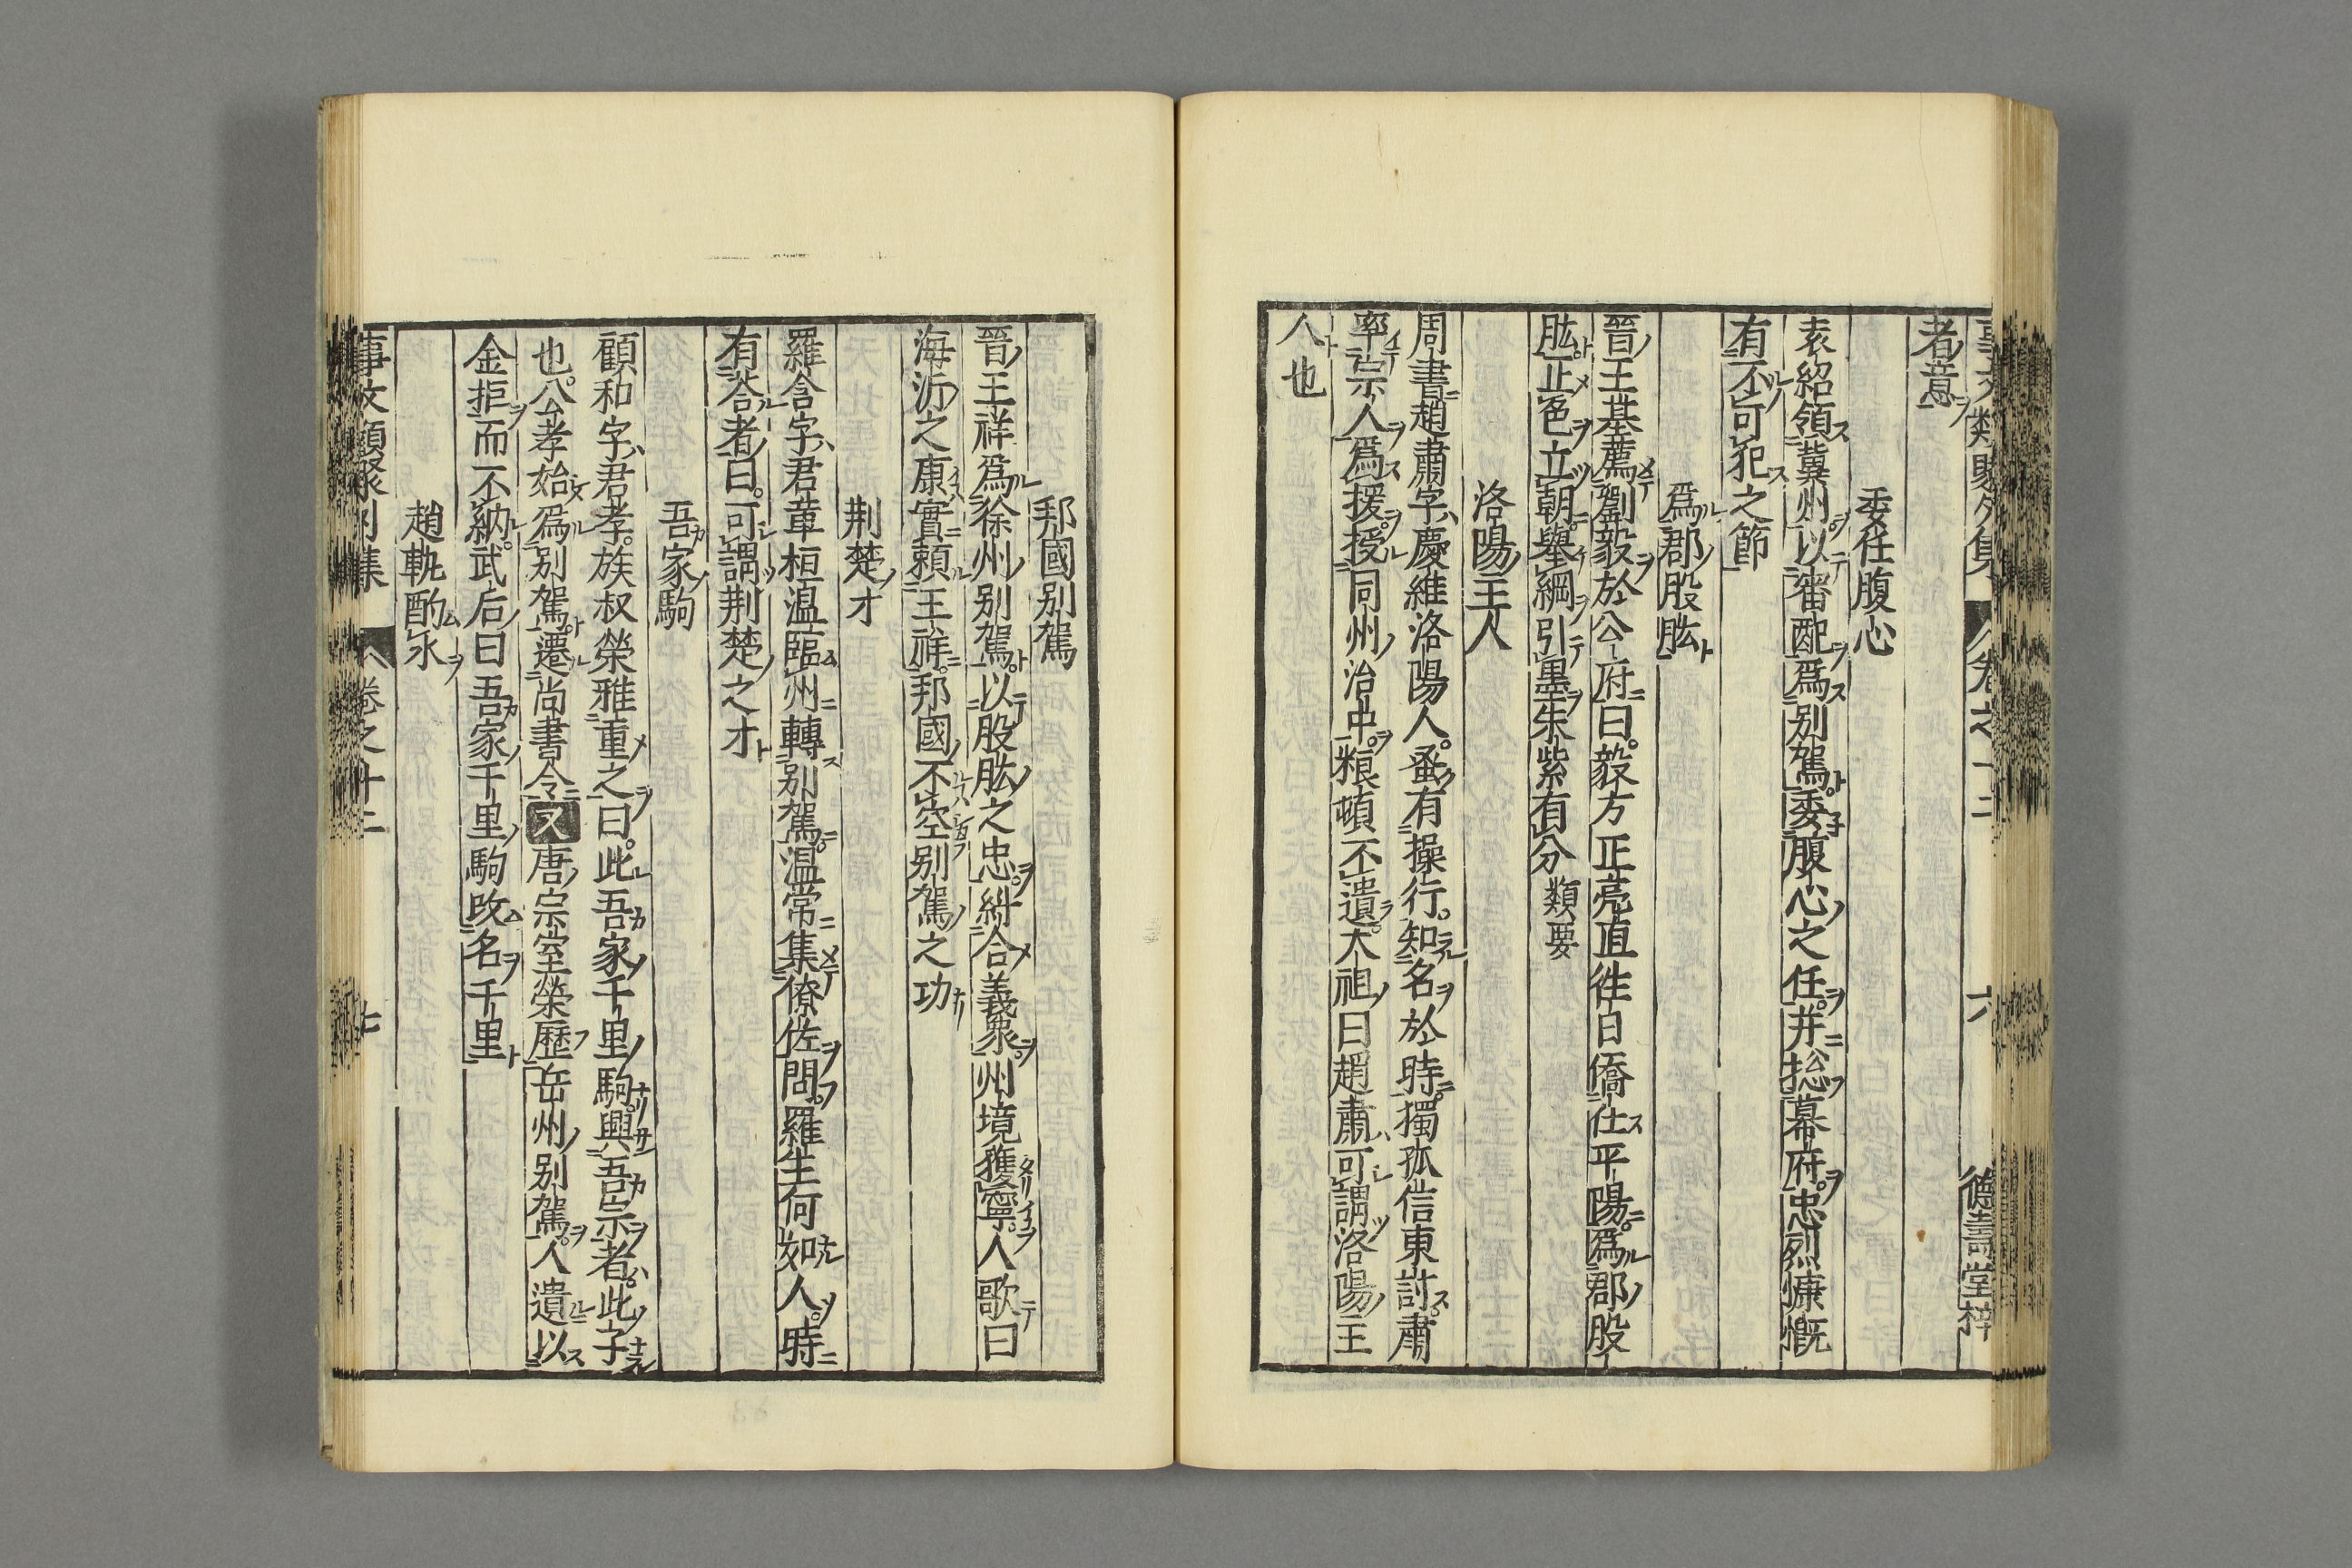 德壽堂梓
者意
委任腹心
袁紹領冀州以審配爲别駕委腹心之任并総幕府忠烈慷慨
有不可犯之節
爲郡股肱
晉王基薦劉毅於公府曰毅方正亮直徃日僑仕平陽爲郡股
肱正色立朝舉綱引墨朱紫有分 類要
洛陽主人
周書趙肅字慶維洛陽人蚤有操行知名於時獨孤信東討肅
率宗人爲援授同州治中粮頓不遺太祖曰趙肅可謂洛陽主
人也
邦國别駕
晉王祥爲徐州别駕以股肱之忠糾合義衆州境獲寧人歌曰
海沂之康實頼王祥邦國不空别駕之功
荆楚才
羅含字君章桓温臨州轉别駕温常集僚佐問羅生何如人時
有荅者曰可謂荆楚之才
吾家駒
顧和字君孝族叔榮雅重之曰此吾家千里駒興吾宗者此子
也公孝始爲别駕遷尚書令又唐宗室榮歷岳州别駕人遺以
金拒而不納武后曰吾家千里駒改名千里
趙軌酌水
事文類聚 集 卷之十二 七